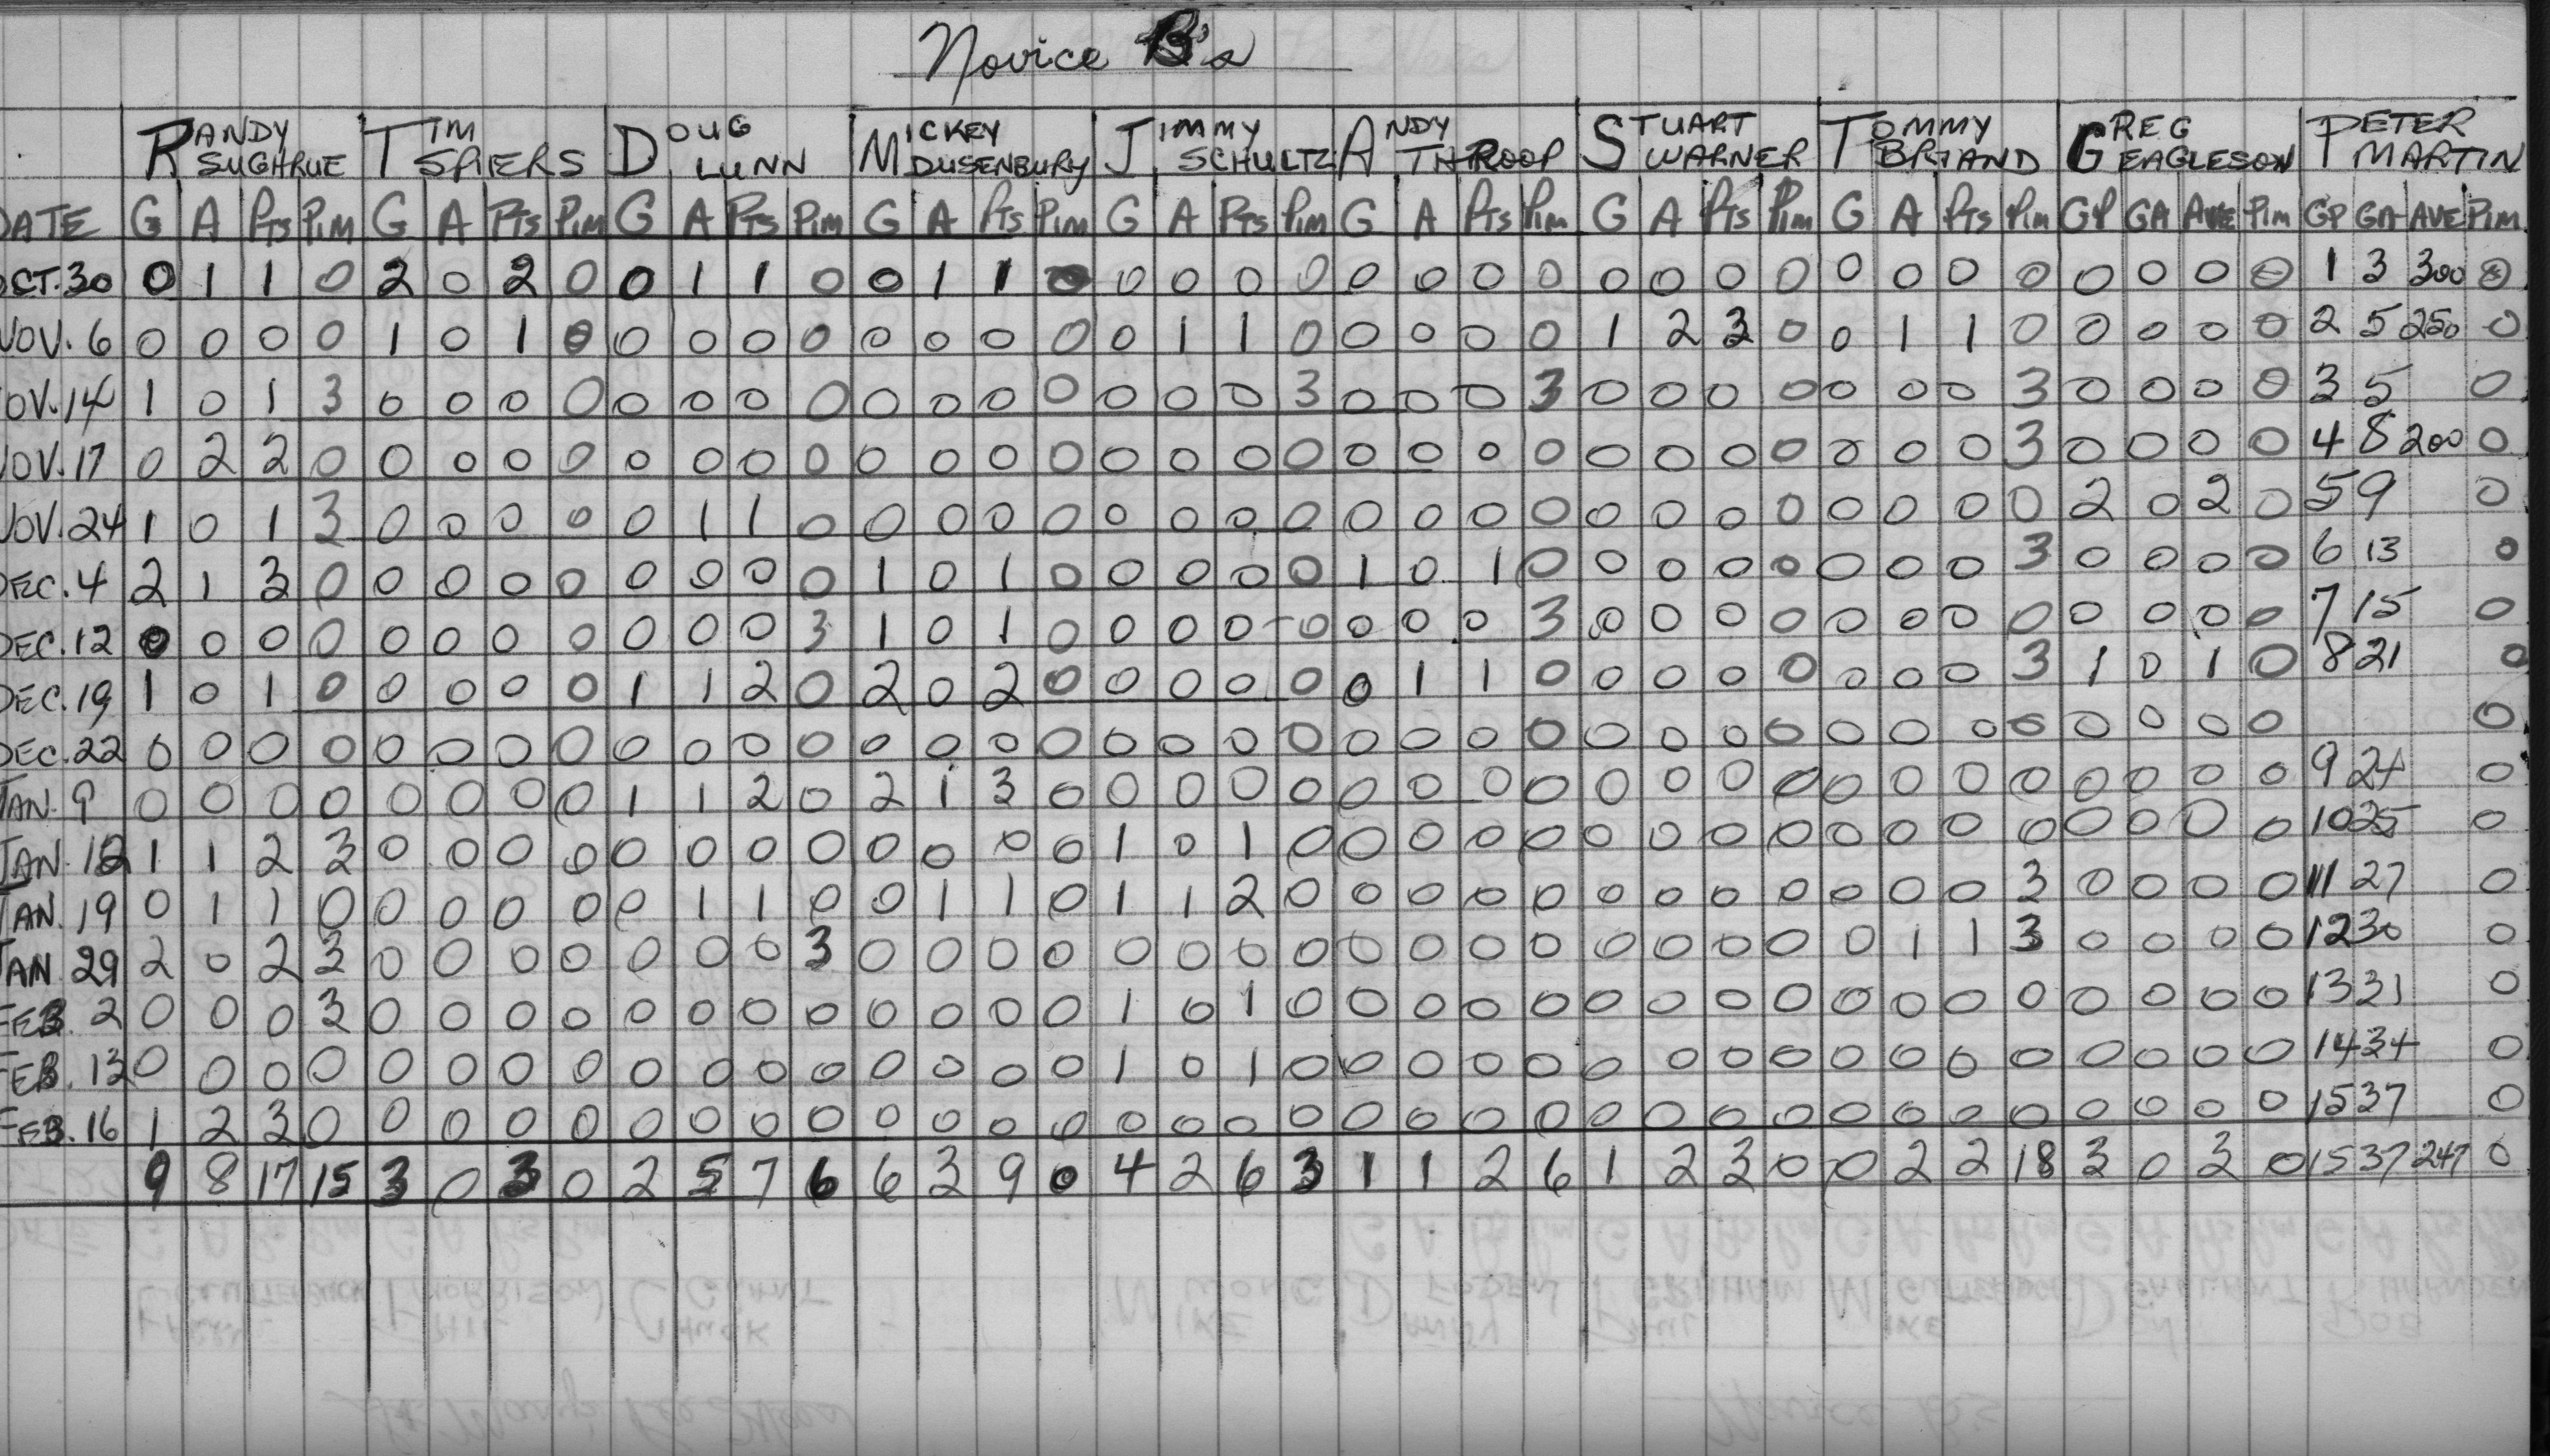 Novice B's
RANDY SUGHRUE TIM SPIERS DOUG LUNN MICKEY DUSENBURY JIMMY SCHULTZ ANDY THROOP STUART WARNER TOMMY BRIAND GREG EAGLESON PETER MARTIN
DATE G A Pts Pim G A Pts Pim G A Pts Pim G A Pts Pim G A Pts Pim G A Pts Pim G A Pts Pim G A Pts Pim GP GA AVE Pim GP GA AVE Pim
OCT. 30 0 1 1 0 2 0 2 0 0 1 1 0 0 1 1 0 0 0 0 0 0 0 0 0 0 0 0 0 0 0 0 0 0 0 0 0 1 3 300 0
NOV. 6 0 0 0 0 1 0 1 0 0 0 0 0 0 0 0 0 0 1 1 0 0 0 0 0 1 2 3 0 0 1 1 0 0 0 0 0 2 5 250 0
NOV. 14 1 0 1 3 0 0 0 0 0 0 0 0 0 0 0 0 0 0 0 3 0 0 0 3 0 0 0 0 0 0 0 3 0 0 0 0 3 5 0
NOV. 17 0 2 2 0 0 0 0 0 0 0 0 0 0 0 0 0 0 0 0 0 0 0 0 0 0 0 0 0 0 0 0 3 0 0 0 0 4 8 200 0
NOV. 24 1 0 1 3 0 0 0 0 0 1 1 0 0 0 0 0 0 0 0 0 0 0 0 0 0 0 0 0 0 0 0 0 2 0 2 0 5 9 0
DEC. 4 2 1 3 0 0 0 0 0 0 0 0 0 1 0 1 0 0 0 0 0 1 0 1 0 0 0 0 0 0 0 0 3 0 0 0 0 6 13 0
DEC. 12 0 0 0 0 0 0 0 0 0 0 0 3 1 0 1 0 0 0 0 0 0 0 0 3 0 0 0 0 0 0 0 0 0 0 0 0 7 15 0
DEC. 19 1 0 1 0 0 0 0 0 1 1 2 0 2 0 2 0 0 0 0 0 0 1 1 0 0 0 0 0 0 0 0 3 1 0 1 0 8 21 0
DEC. 22 0 0 0 0 0 0 0 0 0 0 0 0 0 0 0 0 0 0 0 0 0 0 0 0 0 0 0 0 0 0 0 0 0 0 0 0 0
JAN. 9 0 0 0 0 0 0 0 0 1 1 2 0 2 1 3 0 0 0 0 0 0 0 0 0 0 0 0 0 0 0 0 0 0 0 0 0 9 24 0
JAN. 12 1 1 2 3 0 0 0 0 0 0 0 0 0 0 0 0 1 0 1 0 0 0 0 0 0 0 0 0 0 0 0 0 0 0 0 0 10 25 0
JAN. 19 0 1 1 0 0 0 0 0 0 1 1 0 0 1 1 0 1 1 2 0 0 0 0 0 0 0 0 0 0 0 0 3 0 0 0 0 11 27 0
JAN 29 2 0 2 3 0 0 0 0 0 0 0 3 0 0 0 0 0 0 0 0 0 0 0 0 0 0 0 0 0 1 1 3 0 0 0 0 12 30 0
FEB. 2 0 0 0 3 0 0 0 0 0 0 0 0 0 0 0 0 1 0 1 0 0 0 0 0 0 0 0 0 0 0 0 0 0 0 0 0 13 31 0
FEB. 13 0 0 0 0 0 0 0 0 0 0 0 0 0 0 0 0 1 0 1 0 0 0 0 0 0 0 0 0 0 0 0 0 0 0 0 0 14 34 0
FEB. 16 1 2 3 0 0 0 0 0 0 0 0 0 0 0 0 0 0 0 0 0 0 0 0 0 0 0 0 0 0 0 0 0 0 0 0 0 15 37 0
9 8 17 15 3 0 3 0 2 5 7 6 6 3 9 0 4 2 6 3 1 1 2 6 1 2 3 0 0 2 2 18 3 0 3 0 15 37 247 0